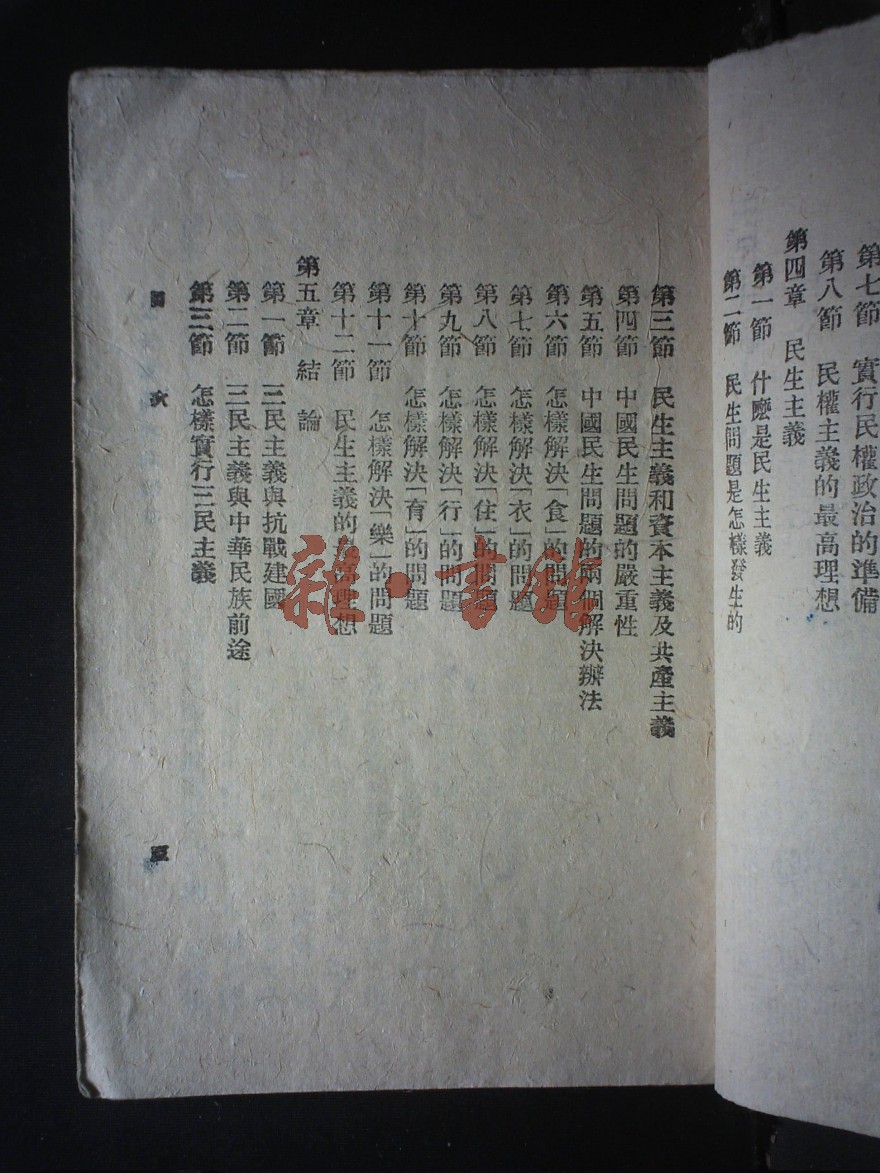 第七節 實行民權政治的準備
第八節 民權主義的最高理想
第四章 民生主義
第一節 什麼是民生主義
第二節 民生問題是怎樣發生的
第三節 民生主義和資本主義及共產主義
第四節 中國民生問題的嚴重性
第五節 中國民生問題的兩個解決辦法
第六節 怎樣解決「食」的問題
第七節 怎樣解決「衣」的問題
第八節 怎樣解決「住」的問題
第九節 怎樣解決「行」的問題
第十節 怎樣解決「育」的問題
第十一節 怎樣解決「樂」的問題
第十二節 民生主義的最高理想
第五章 結論
第一節 三民主義與抗戰建國
第二節 三民主義與中華民族前途
第三節 怎樣實行三民主義
目次
三
雜·書館